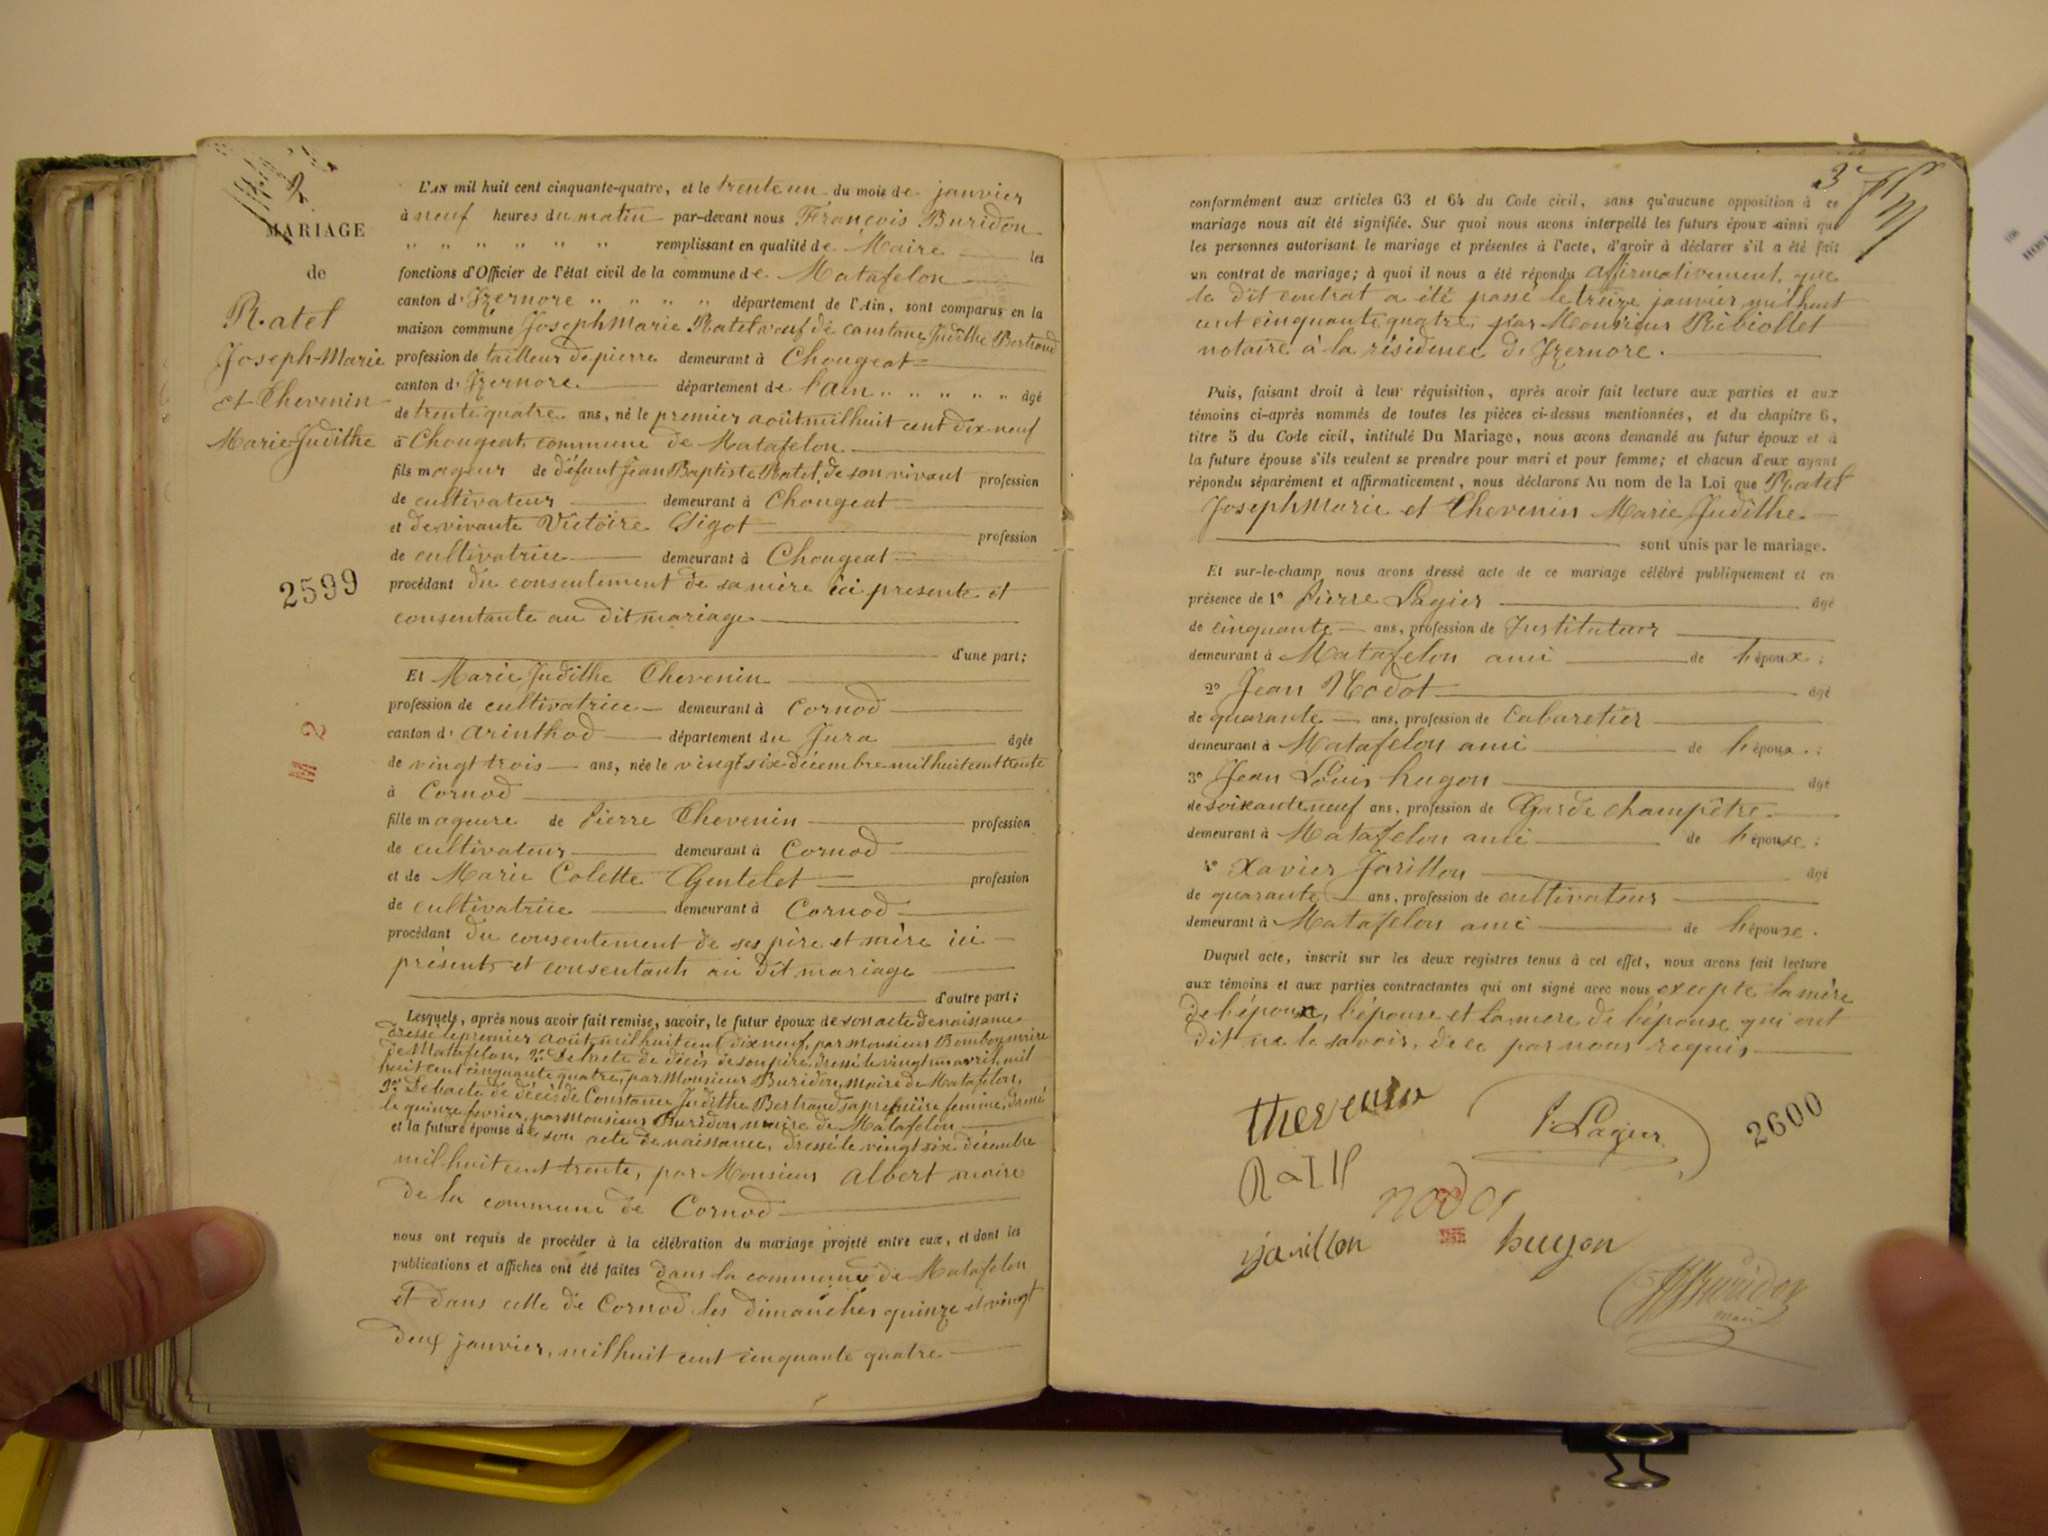 2.
MARIAGE
de
Ratel
Joseph-Marie
et Chevenin
Marie Judithe
2599
M 2
L'AN mil huit cent cinquante-quatre, et le trente un du mois de janvier
à neuf heures du matin par-devant nous François Buridon
" " " " " " remplissant en qualité de Maire les
fonctions d'Officier de l'état civil de la commune de Matafelon
canton d'Izernore " " " " département de l'Ain, sont comparus en la
maison commune Joseph Marie Ratel veuf de Constance Judithe Bertrand
profession de tailleur de pierre demeurant à Chougeat
canton d'Izernore département de l'ain " " " " " âgé
de trente quatre ans, né le premier août mil huit cent dix neuf
à Chougeat, commune de Matafelon
fils mageur de défunt Jean Baptiste Ratel, de son vivant profession
de cultivateur demeurant à Chougeat
et de vivante Victoire Sigot profession
de cultivatrice demeurant à Chougeat
procédant du consentement de sa mère ici presente et
consentante au dit mariage
d'une part;
Et Marie Judithe Chevenin
profession de cultivatrice demeurant à Cornod
canton d'arinthod département du Jura âgée
de vingt trois ans, née le vingt six décembre mil huit cent trente
à Cornod
fille mageure de Pierre Chevenin profession
de cultivateur demeurant à Cornod
et de Marie Colette Gentelet profession
de cultivatrice demeurant à Cornod
procédant du consentement de ses père et mère ici
présents et consentants au dit mariage
d'autre part;
Lesquels, après nous avoir fait remise, savoir, le futur époux de son acte de naissance
dressé le premier août mil huit cent dix neuf, par Monsieur Bomboy maire
de Matafelon, 2° De l'acte de décès de son père, dressé le vingt un avril mil
huit cent cinquante quatre, par Monsieur Buridon, maire de Matafelon,
3° De l'acte de décès de Constance Judithe Bertrand sa première femme, dressé
le quinze fevrier, par Monsieur Buridon maire de Matafelon
et la future épouse de son acte de naissance, dressé le vingt six décembre
mil huit cent trente, par Monsieur Albert maire
de la commune de Cornod
nous ont requis de procéder à la célébration du mariage projeté entre eux, et dont les
publications et affiches ont été faites dans la commune de Matafelon
et dans celle de Cornod les dimanches quinze et vingt
deux janvier, mil huit cent cinquante quatre
3e
conformément aux articles 63 et 64 du Code civil, sans qu'aucune opposition à ce
mariage nous ait été signifiée. Sur quoi nous avons interpellé les futurs époux ainsi que
les personnes autorisant le mariage et présentes à l'acte, d'avoir à déclarer s'il a été fait
un contrat de mariage; à quoi il nous a été répondu affirmativement, que
le dit contrat a été passé le treize janvier mil huit
cent cinquante quatre, par Monsieur Ribiollet
notaire à la résidence d'Izernore.
Puis, faisant droit à leur réquisition, après avoir fait lecture aux parties et aux
témoins ci-après nommés de toutes les pièces ci-dessus mentionnées, et du chapitre 6,
titre 5 du Code civil, intitulé Du Mariage, nous avons demandé au futur époux et à
la future épouse s'ils veulent se prendre pour mari et pour femme; et chacun d'eux ayant
répondu séparément et affirmativement, nous déclarons Au nom de la Loi que Ratel
Joseph Marie et Chevenin Marie Judithe.
sont unis par le mariage.
Et sur-le-champ nous avons dressé acte de ce mariage célébré publiquement et en
présence de 1° Pierre Lagier âgé
de cinquante ans, profession de Instituteur
demeurant à Matafelon ami de l'époux;
2° Jean Nodot âgé
de quarante ans, profession de Cabaretier
demeurant à Matafelon ami de l'époux;
3° Jean Louis hugon âgé
de soixante neuf ans, profession de Garde champêtre
demeurant à Matafelon ami de l'épouse;
4° Xavier Jarillon âgé
de quarante ans, profession de cultivateur
demeurant à Matafelon ami de l'épouse.
Duquel acte, inscrit sur les deux registres tenus à cet effet, nous avons fait lecture
aux témoins et aux parties contractantes qui ont signé avec nous excepte la mère
de l'époux, l'épouse et la mere de l'épouse qui ont
dit ne le savoir, de ce par nous requis
thevenin
P. Lagier
2600
Ratel
nodot
jarillon
hugon
Buridon
maire